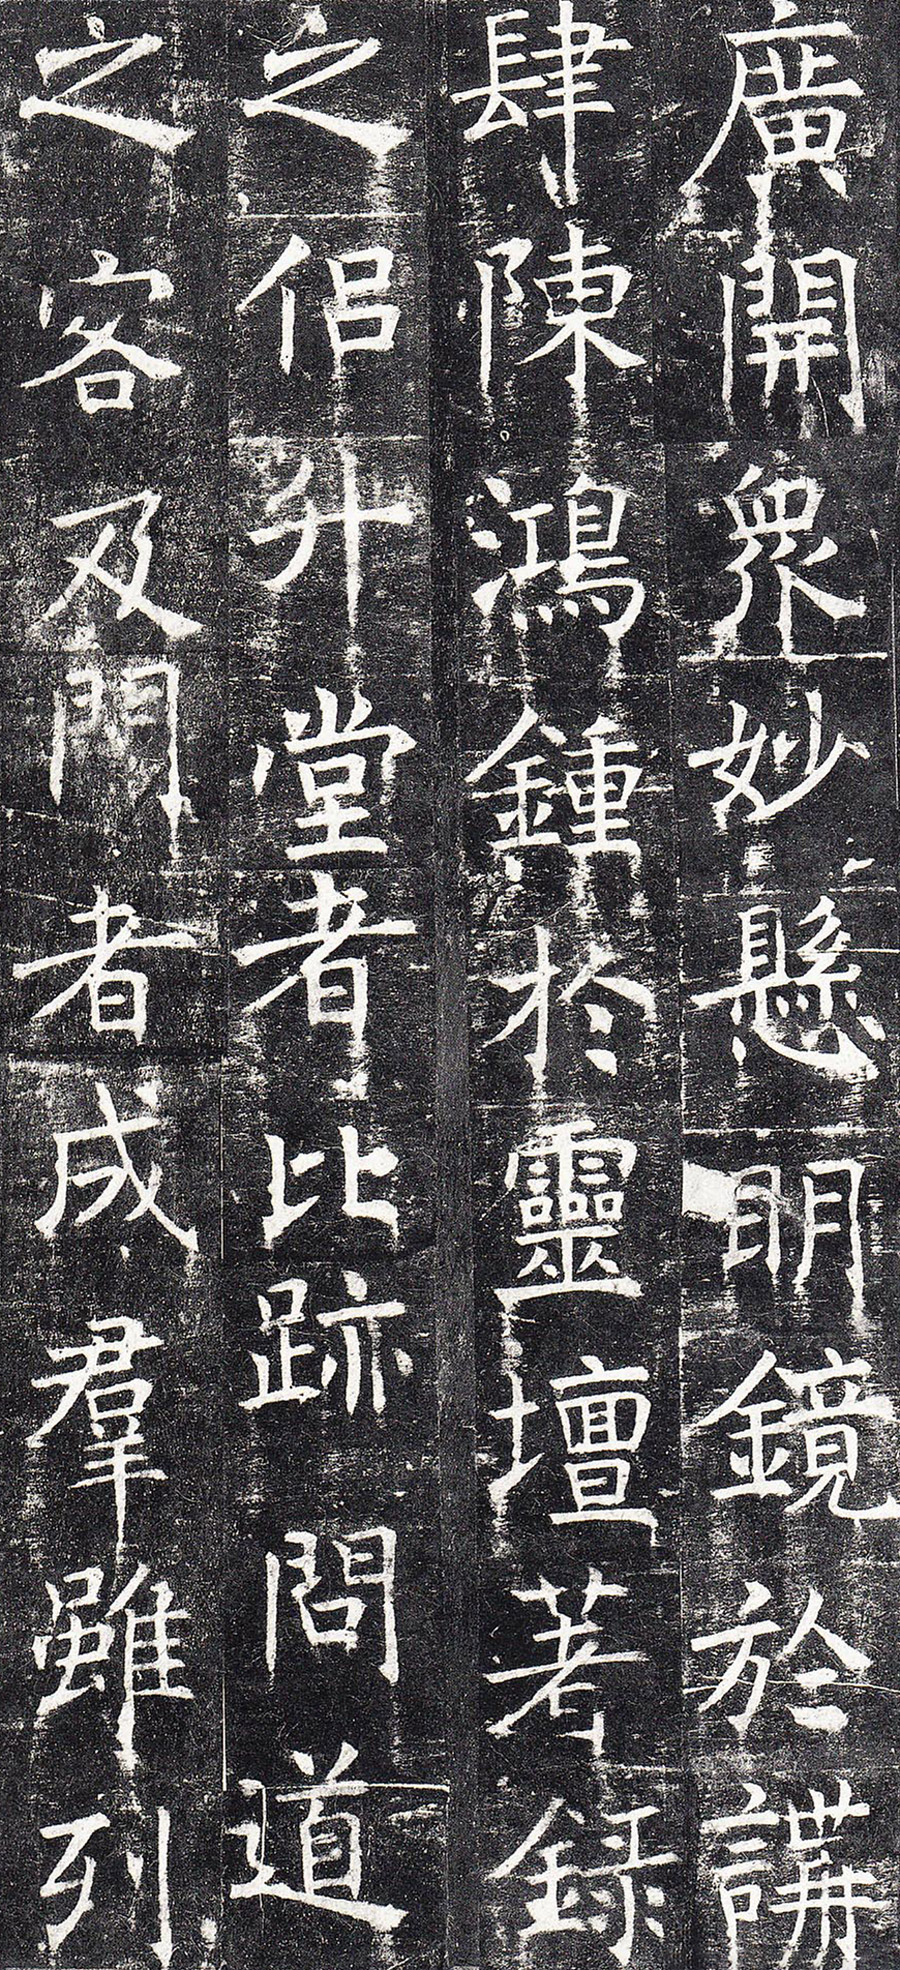 廣開衆妙懸明鏡於講
肆陳鴻鍾於靈壇著錄
之侶升堂者比跡問道
之客及門者成羣雖列